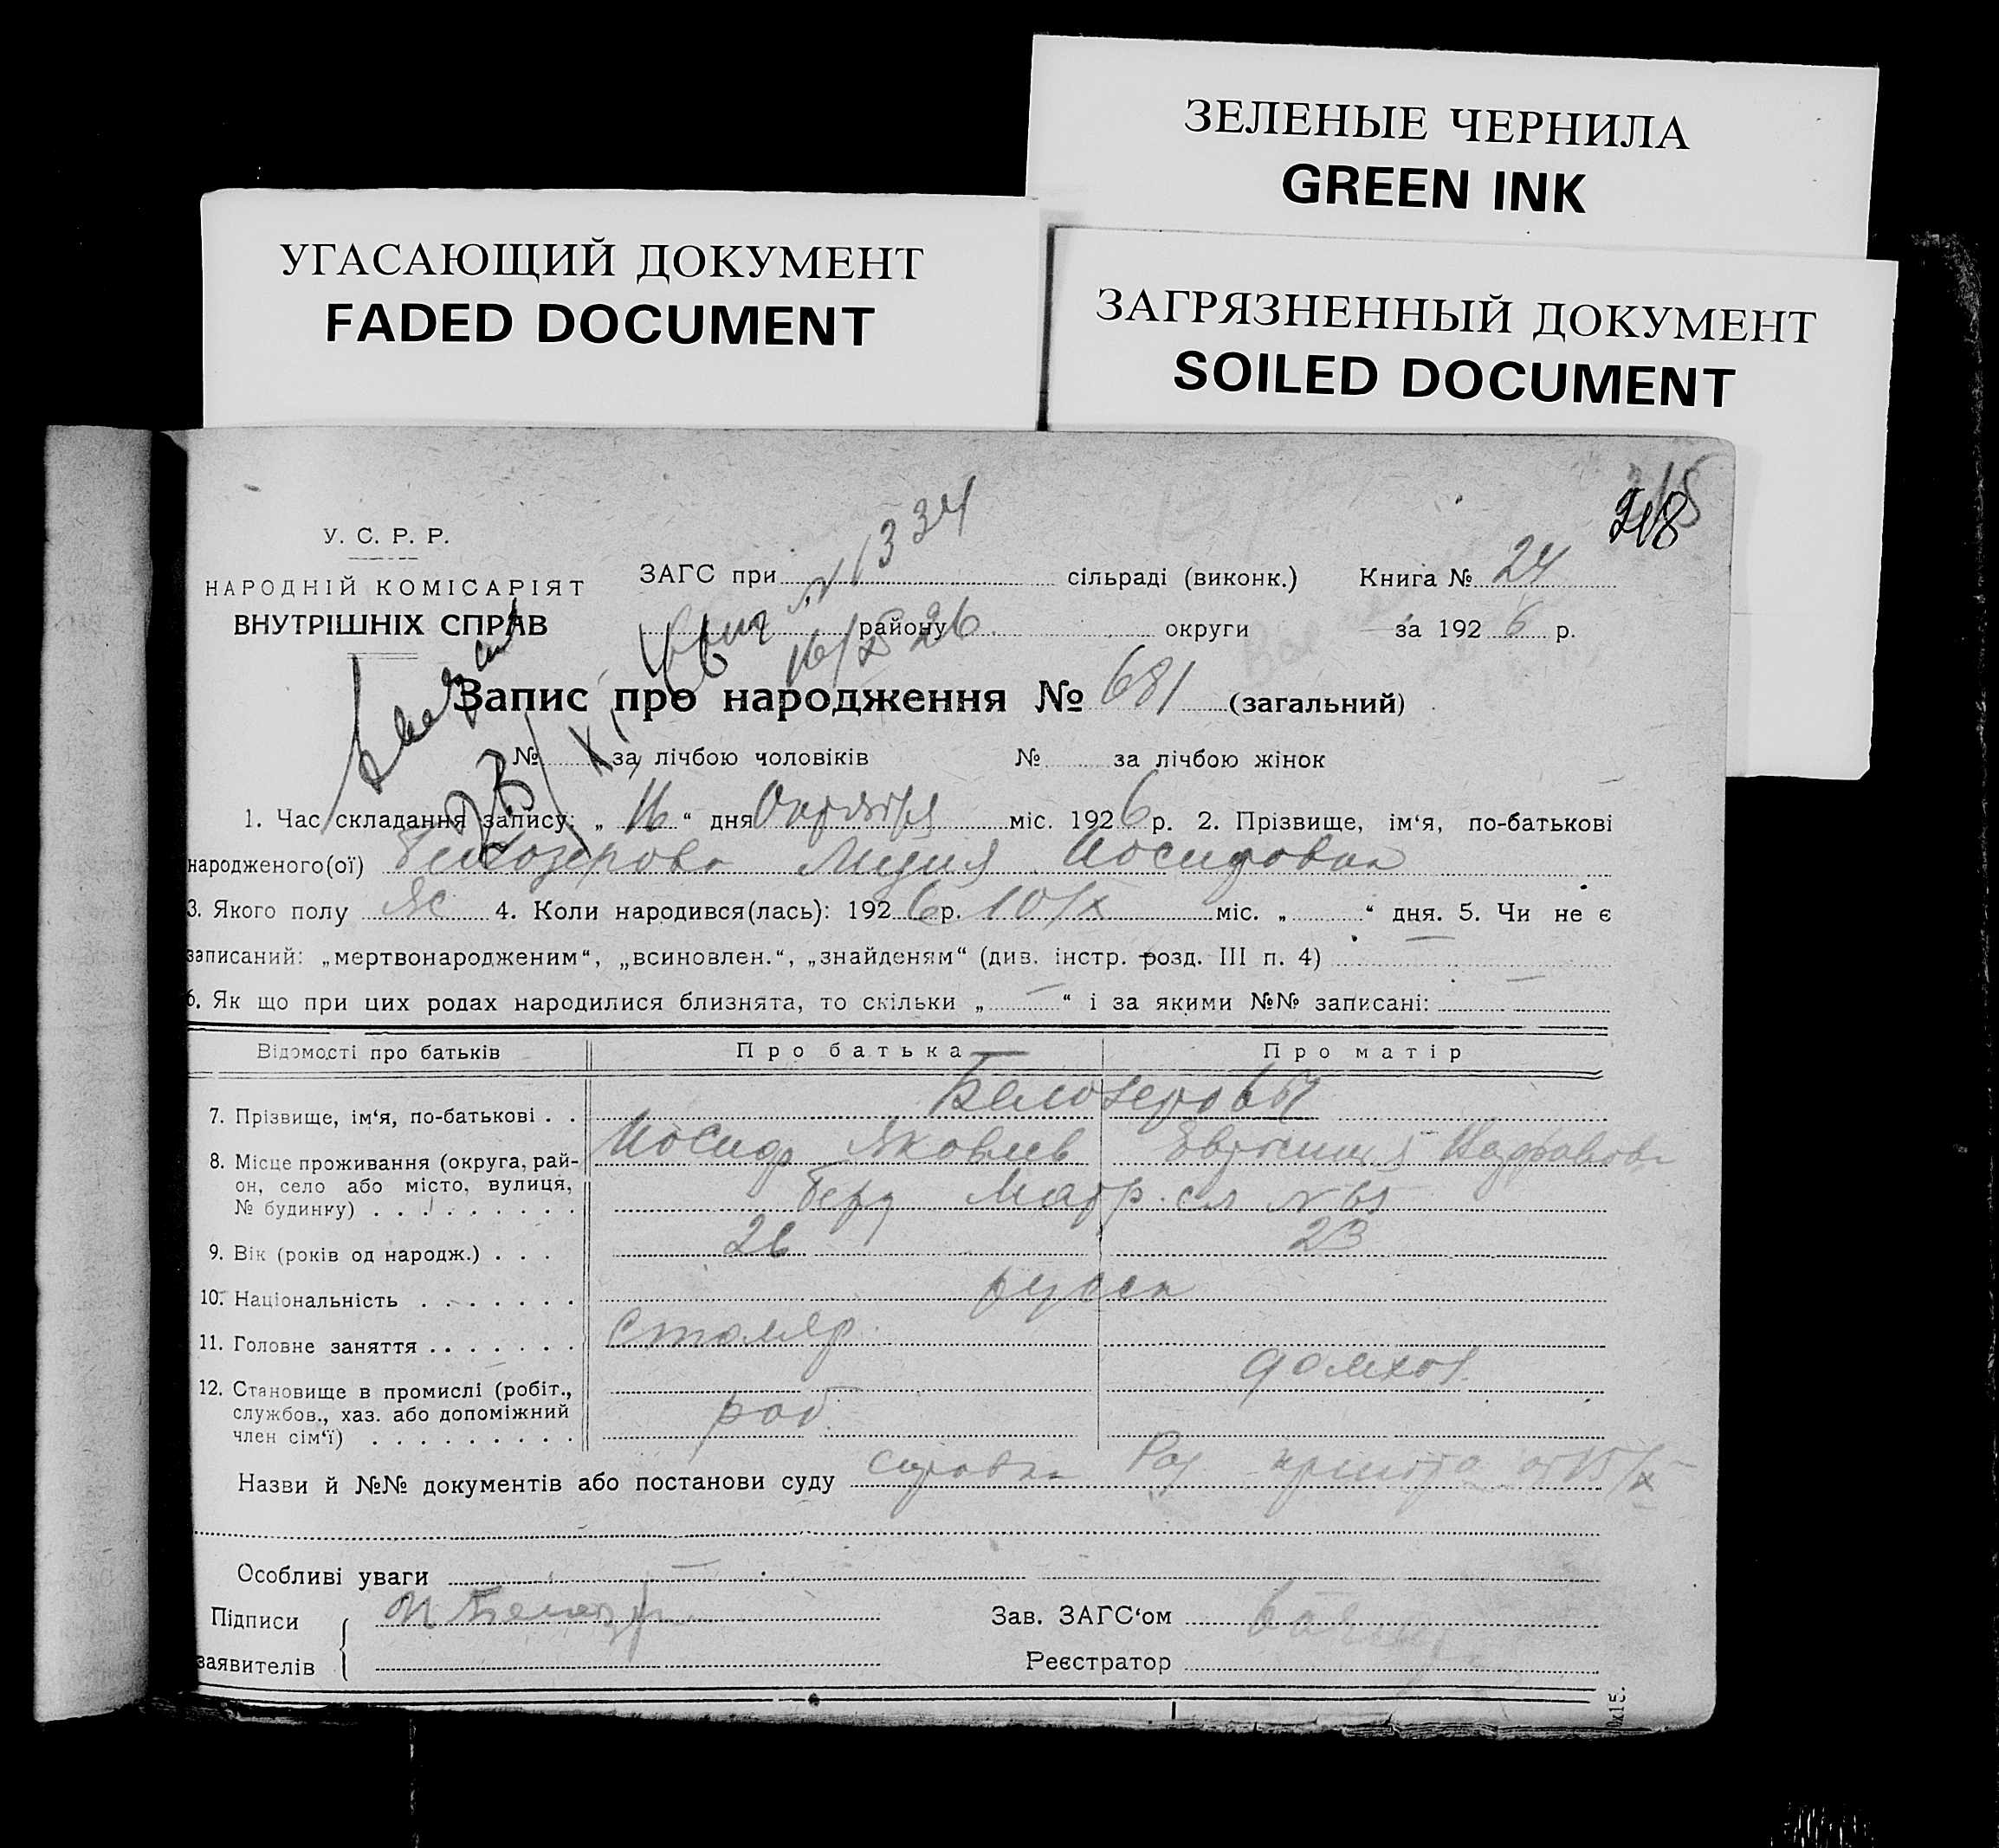 ЗЕЛЕНЫЕ ЧЕРНИЛА
GREEN INK
УГАСАЮЩИЙ ДОКУМЕНТ
FADED DOCUMENT
ЗАГРЯЗНЕННЫЙ ДОКУМЕНТ
SOILED DOCUMENT
У. С. Р. Р.
НАРОДНІЙ КОМІСАРІЯТ
ВНУТРІШНІХ СПРАВ
ЗАГС при № 1334 сільраді (виконк.) Книга № 24
району 16/X 26 округи за 1926 р.
Запис про народження № 681 (загальний)
№ за лічбою чоловіків № за лічбою жінок
1. Час складання запису: „16“ дня Октября міс. 1926 р. 2. Прізвище, ім‘я, по-батькові
народженого(ої) Белозерова Лидия Иосифовна
3. Якого полу ж 4. Коли народився(лась): 1926 р. 10/X міс. „ “ дня. 5. Чи не є
записаний: „мертвонародженим“, „всиновлен.“, „знайденям“ (див. інстр. розд. III п. 4)
6. Як що при цих родах народилися близнята, то скільки „—“ і за якими №№ записані:
Відомості про батьків Про батька Про матір
7. Прізвище, ім‘я, по-батькові . . Белозеровы
Иосиф Яковлев
8. Місце проживання (округа, рай-
он, село або місто, вулиця,
№ будинку) . . . . . . . . .
9. Вік (років од народж.) . . . 26 23
10. Національність . . . . . . . русск
11. Головне заняття . . . . . . . Столяр
домхоз.
12. Становище в промислі (робіт.,
службов., хаз. або допоміжний
член сім‘ї) . . . . . . . . . раб.
Назви й №№ документів або постанови суду справка от 15/X
Особливі уваги —
Підписи Зав. ЗАГС‘ом
заявителів Реєстратор